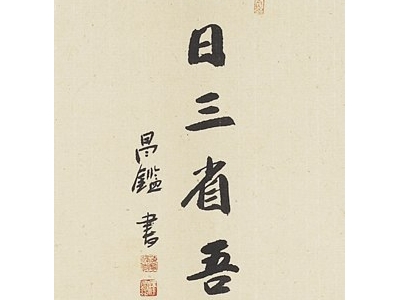 日三省吾
昌鑑書